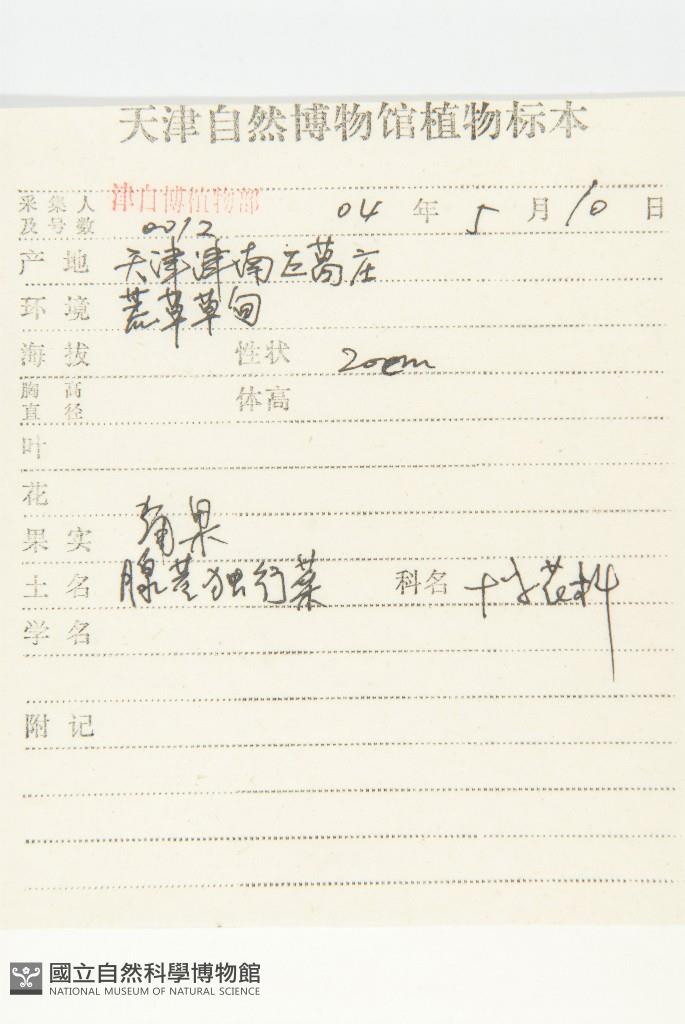 天津自然博物馆植物标本
采集人及号数 津自博植物部 0012 04年5月10日
产地 天津津南区葛庄
环境 荒草草甸
海拔 性状 20cm
胸高直径 体高
叶
花
果实 角果
土名 腺茎独行菜 科名 十字花科
学名
附记
國立自然科學博物館
NATIONAL MUSEUM OF NATURAL SCIENCE